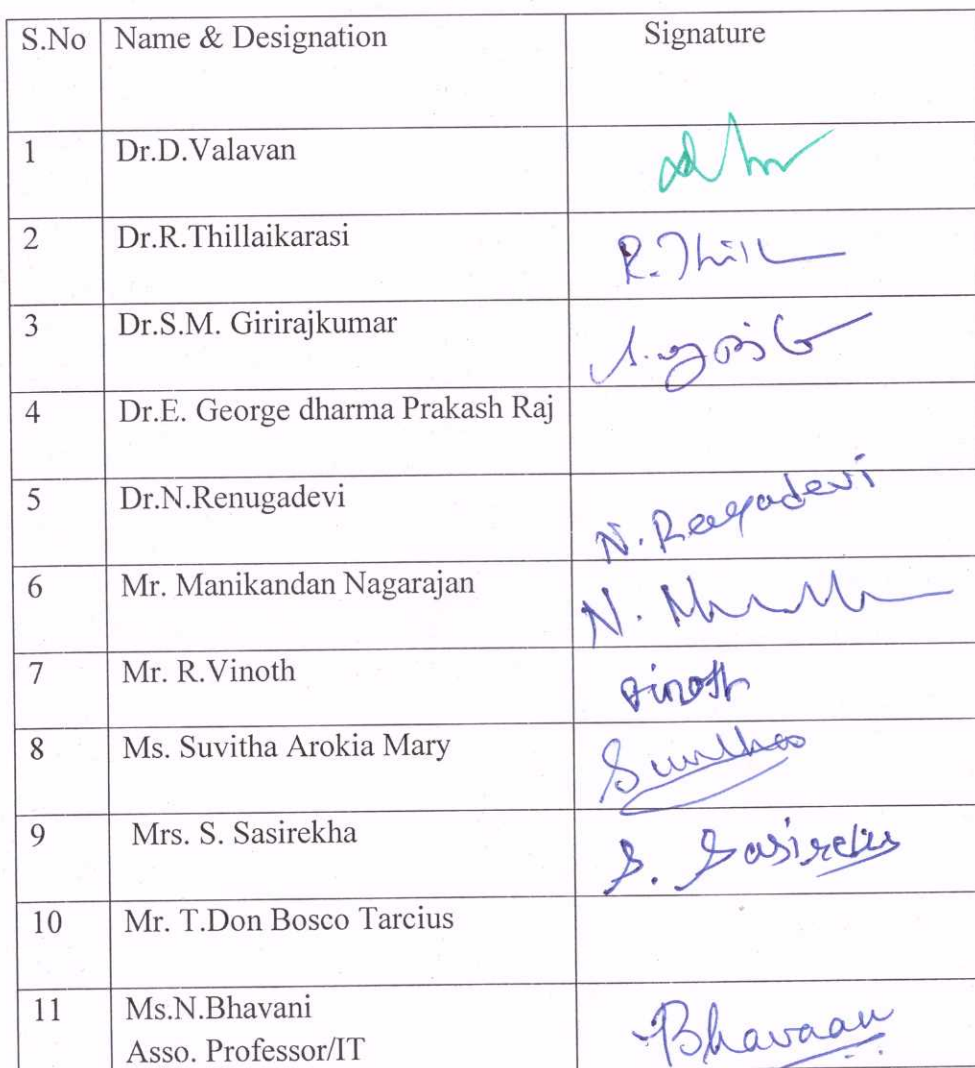 S.No Name & Designation Signature
1 Dr.D.Valavan
2 Dr.R.Thillaikarasi R.Thill
3 Dr.S.M. Girirajkumar
4 Dr.E. George dharma Prakash Raj
5 Dr.N.Renugadevi N.Renugadevi
6 Mr. Manikandan Nagarajan N.
7 Mr. R.Vinoth Vinoth
8 Ms. Suvitha Arokia Mary
9 Mrs. S. Sasirekha S. Sasirekha
10 Mr. T.Don Bosco Tarcius
11 Ms.N.Bhavani
Asso. Professor/IT